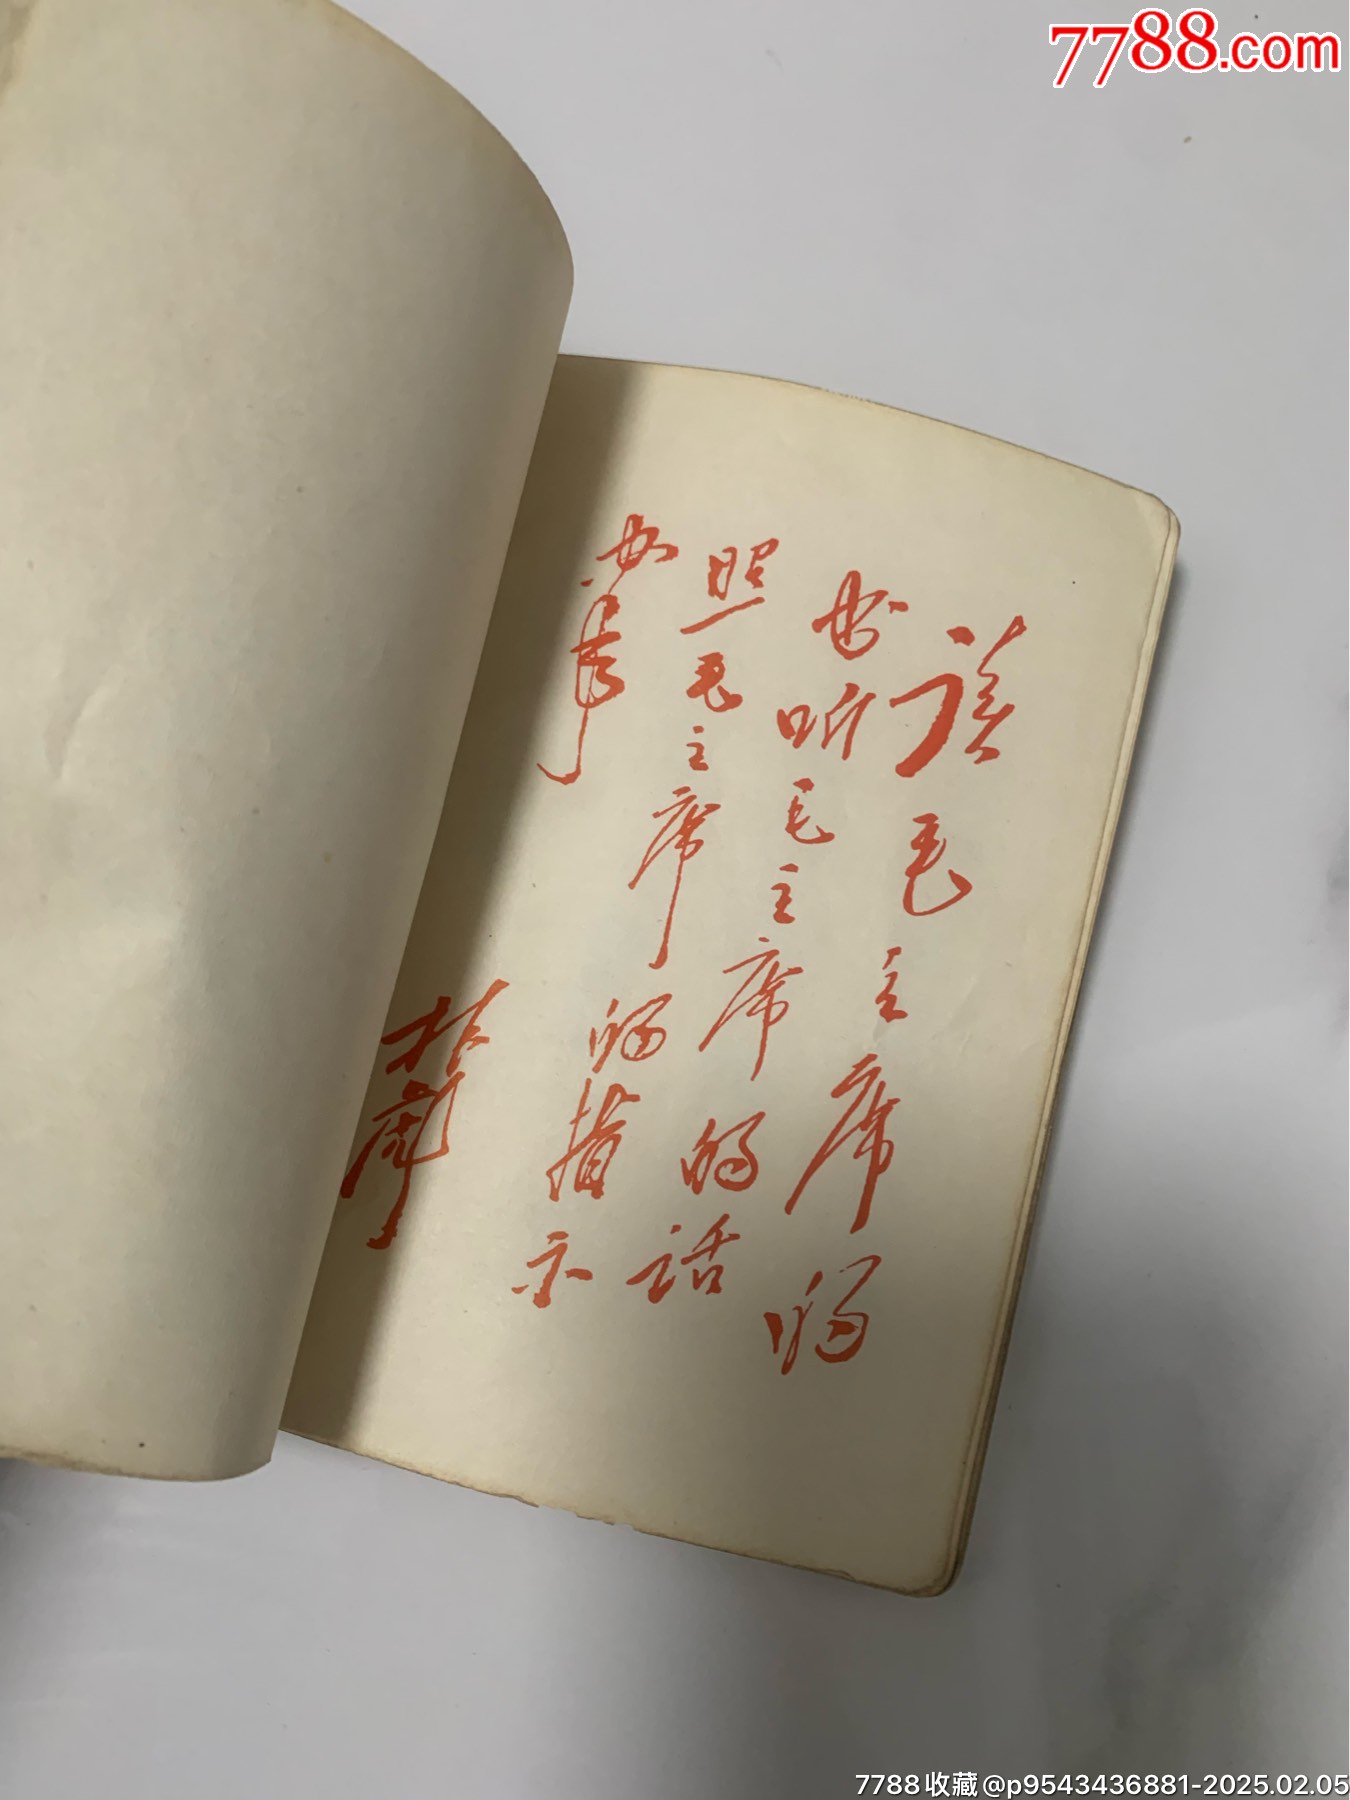 7788.com
读毛主席的
书听毛主席的话
照毛主席的指示
办事
林彪
7788收藏@p9543436881-2025.02.05